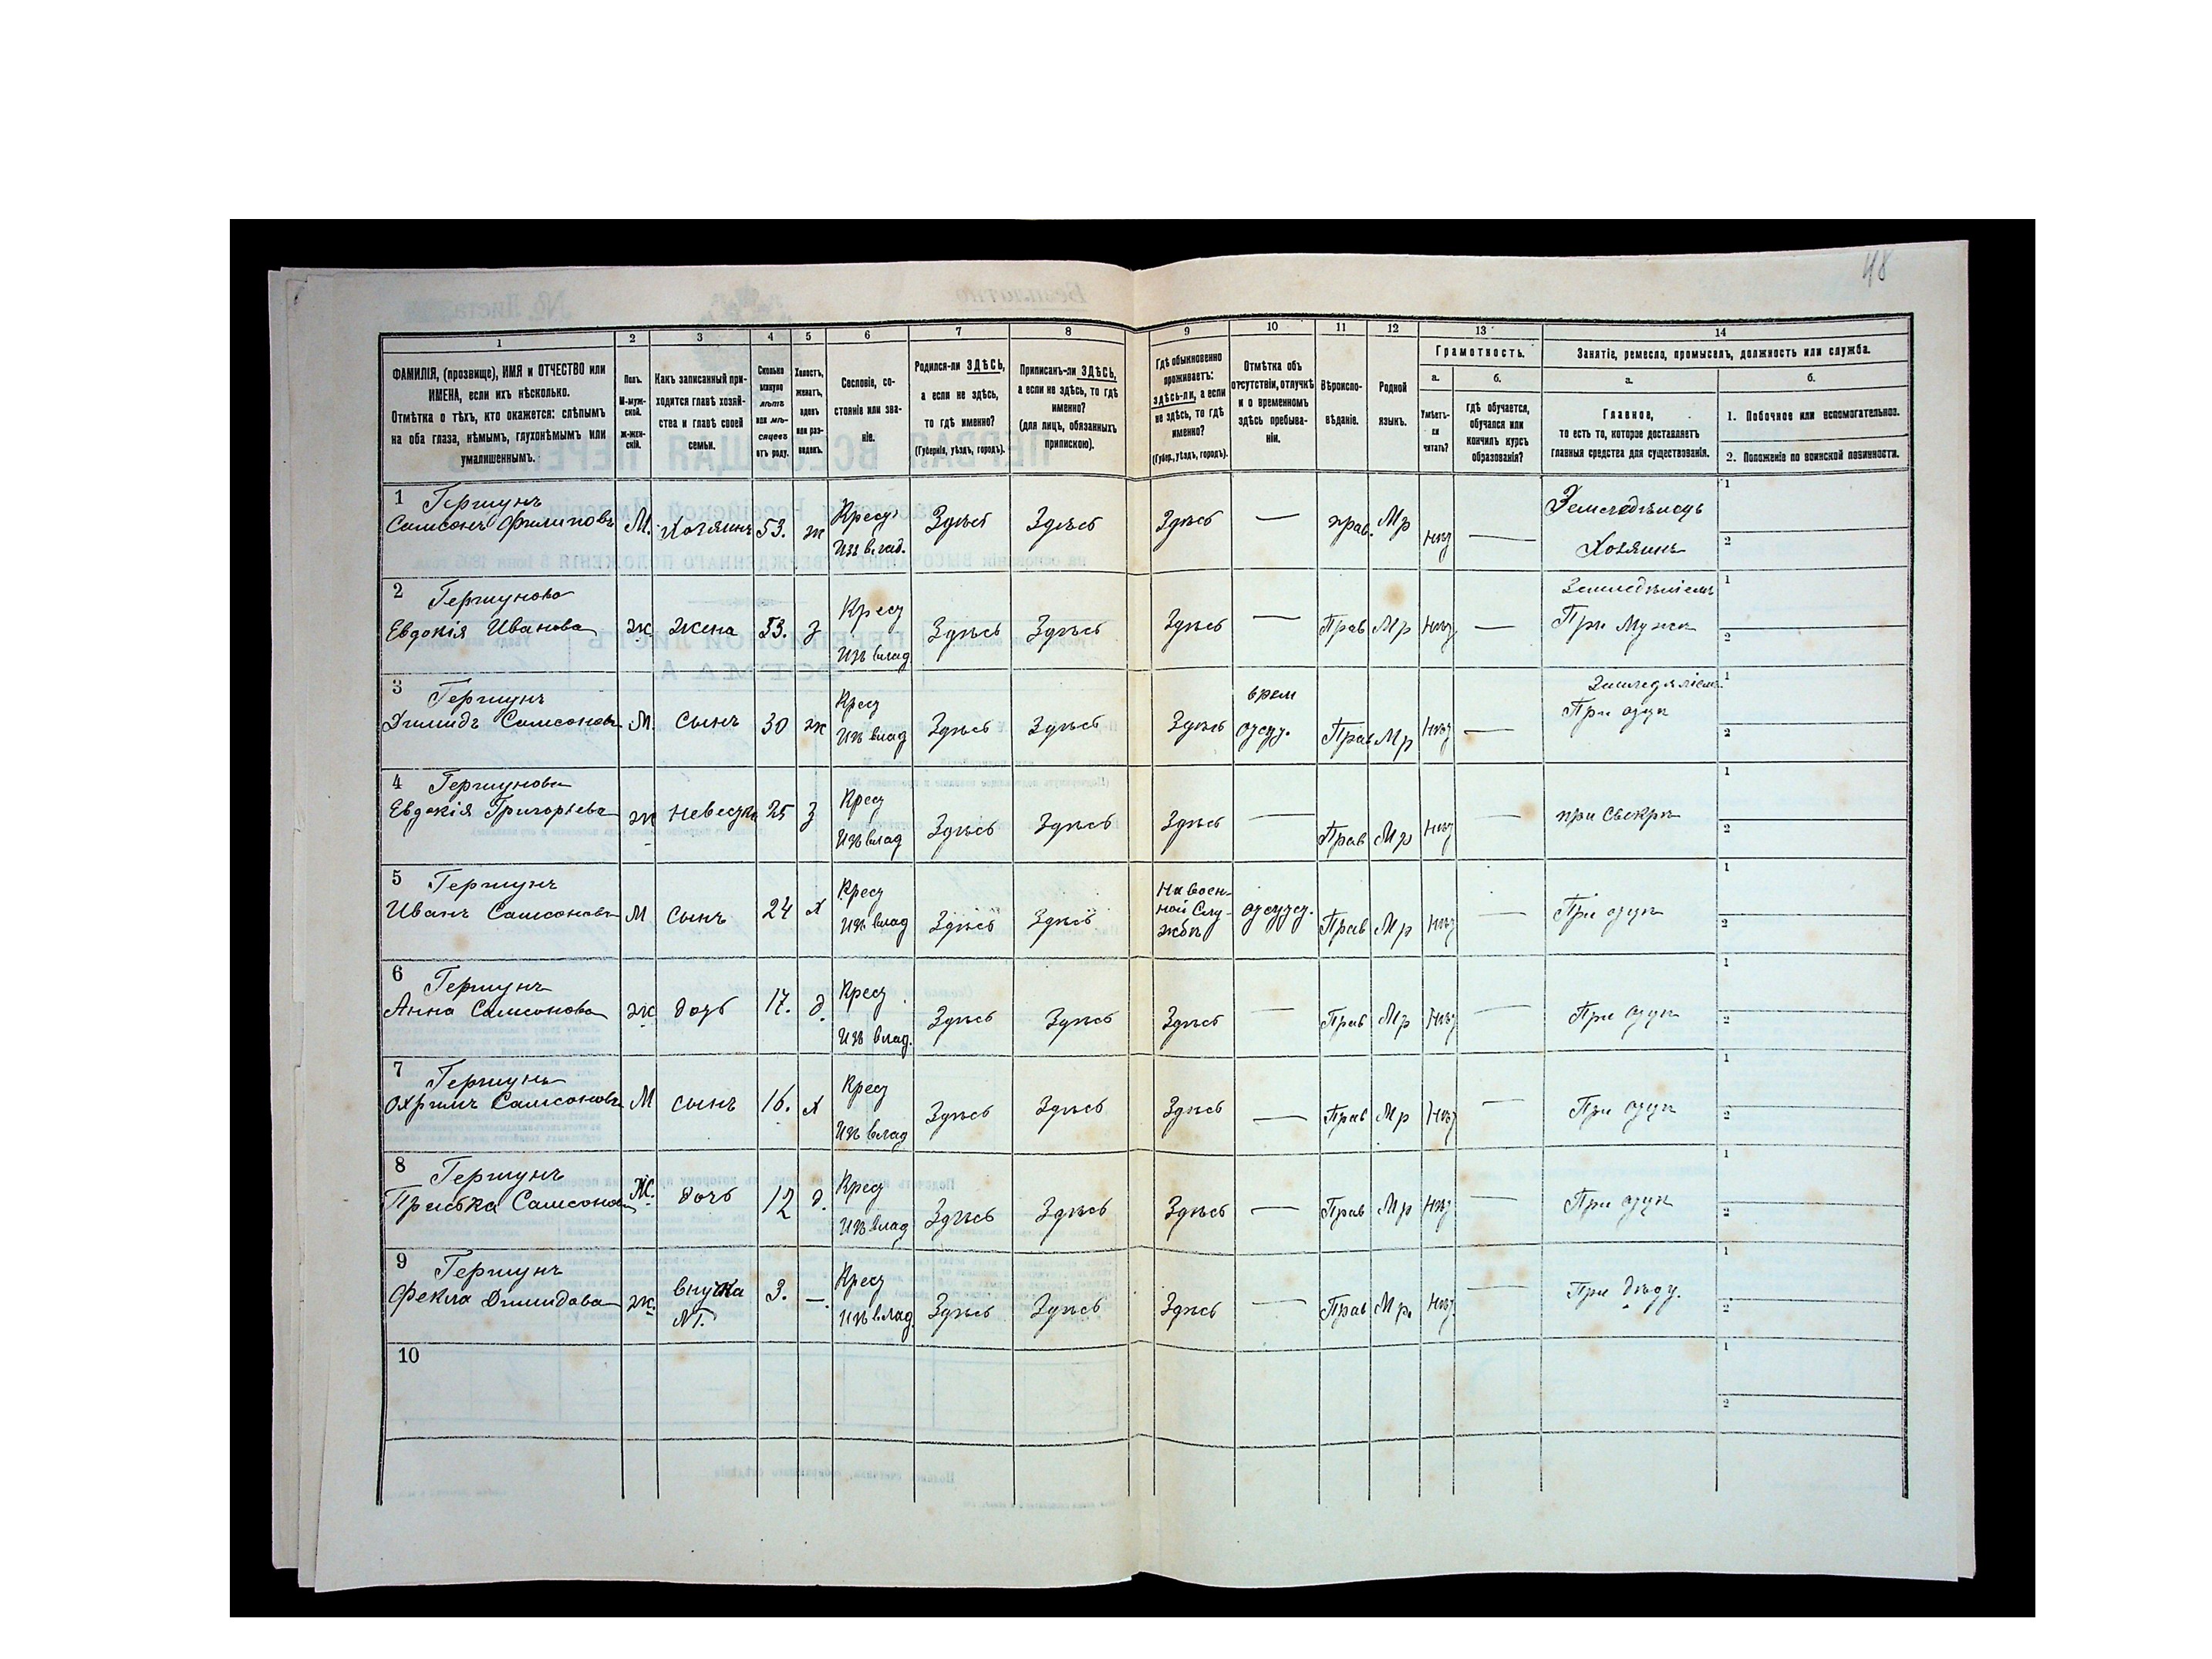 48
1
ФАМИЛІЯ, (прозвище), ИМЯ и ОТЧЕСТВО или
ИМЕНА, если ихъ нѣсколько.
Отмѣтка о тѣхъ, кто окажется: слѣпымъ
на оба глаза, нѣмымъ, глухонѣмымъ или
умалишеннымъ.
2
Полъ.
М-муж-
ской.
Ж-жен-
скій.
3
Какъ записанный при-
ходится главѣ хозяй-
ства и главѣ своей
семьи.
4
Сколько
минуло
лѣтъ
или мѣ-
сяцевъ
отъ роду.
5
Холостъ,
женатъ,
вдовъ
или раз-
веденъ.
6
Сословіе, со-
стояніе или зва-
ніе.
7
Родился-ли ЗДѢСЬ,
а если не здѣсь,
то гдѣ именно?
(Губернія, уѣздъ, городъ).
8
Приписанъ-ли ЗДѢСЬ,
а если не здѣсь, то гдѣ
именно?
(для лицъ, обязанныхъ
припискою).
9
Гдѣ обыкновенно
проживаетъ:
здѣсь-ли, а если
не здѣсь, то гдѣ
именно?
(Губер., уѣздъ, городъ).
10
Отмѣтка объ
отсутствіи, отлучкѣ
и о временномъ
здѣсь пребыва-
ніи.
11
Вѣроиспо-
вѣданіе.
12
Родной
языкъ.
13
Грамотность.
а.
Умѣетъ-
ли
читать?
б.
гдѣ обучается,
обучался или
кончилъ курсъ
образованія?
14
Занятіе, ремесло, промыселъ, должность или служба.
а.
Главное,
то есть то, которое доставляетъ
главныя средства для существованія.
б.
1. Побочное или вспомогательное.
2. Положеніе по воинской повинности.
1 Гершунъ
Самсонъ Филиповъ М. Хозяинъ 53. ж Крест Изъ влад. Здѣсь Здѣсь Здѣсь — прав. Мр Нѣт —
Земледѣлецъ
Хозяинъ
1
2
2 Гершунова
Евдокія Иванова ж жена 53. з Крест Изъ влад Здѣсь Здѣсь Здѣсь — Прав Мр Нѣт —
При Мужѣ
1
2
3 Гершунъ
Самсоновъ М. сынъ 30 ж Крест Изъ влад Здѣсь Здѣсь Здѣсь врем отсут. Прав Мр Нѣт —
При отцѣ
1
2
4 Гершунова
Евдокія Григорьева ж невестка 25 з Крест Изъ влад Здѣсь Здѣсь Здѣсь — Прав Мр Нѣт —
при Свекрѣ
1
2
5 Гершунъ
Иванъ Самсоновъ М сынъ 24 х Крест Изъ влад Здѣсь Здѣсь На воен-
ной Слу-
жбѣ отсутст. Прав Мр Нѣт —
При отцѣ
1
2
6 Гершунъ
Анна Самсонова ж дочь 17. д. Крест Изъ влад. Здѣсь Здѣсь Здѣсь — Прав Мр Нѣт —
При отцѣ
1
2
7 Гершунъ
Охримъ Самсоновъ М сынъ 16. х Крест Изъ влад Здѣсь Здѣсь Здѣсь — Прав Мр Нѣт —
При отцѣ
1
2
8 Гершунъ
Приська Самсонова Ж. дочь 12 д. Крест Изъ влад Здѣсь Здѣсь Здѣсь — Прав Мр Нѣт —
При отцѣ
1
2
9 Гершунъ
Фекла ж. внучка 3. — Крест Изъ влад. Здѣсь Здѣсь Здѣсь — Прав Мр. Нѣт —
При дѣду.
1
2
10
1
2